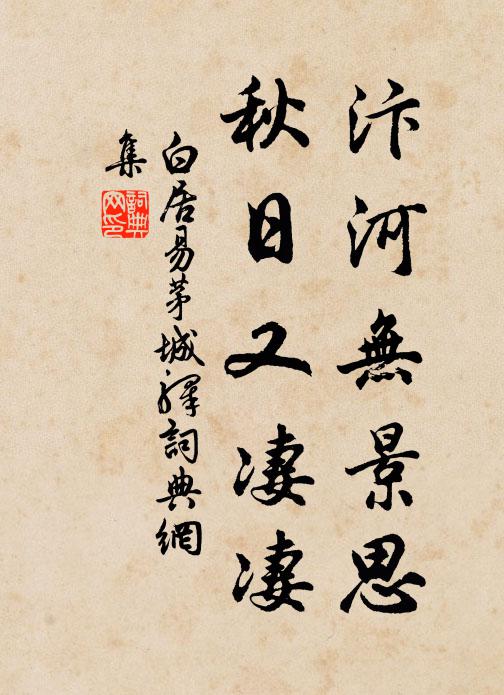 汴河無景思
秋日又凄凄
白居易茅城驛詞典網
集
詞典
网印